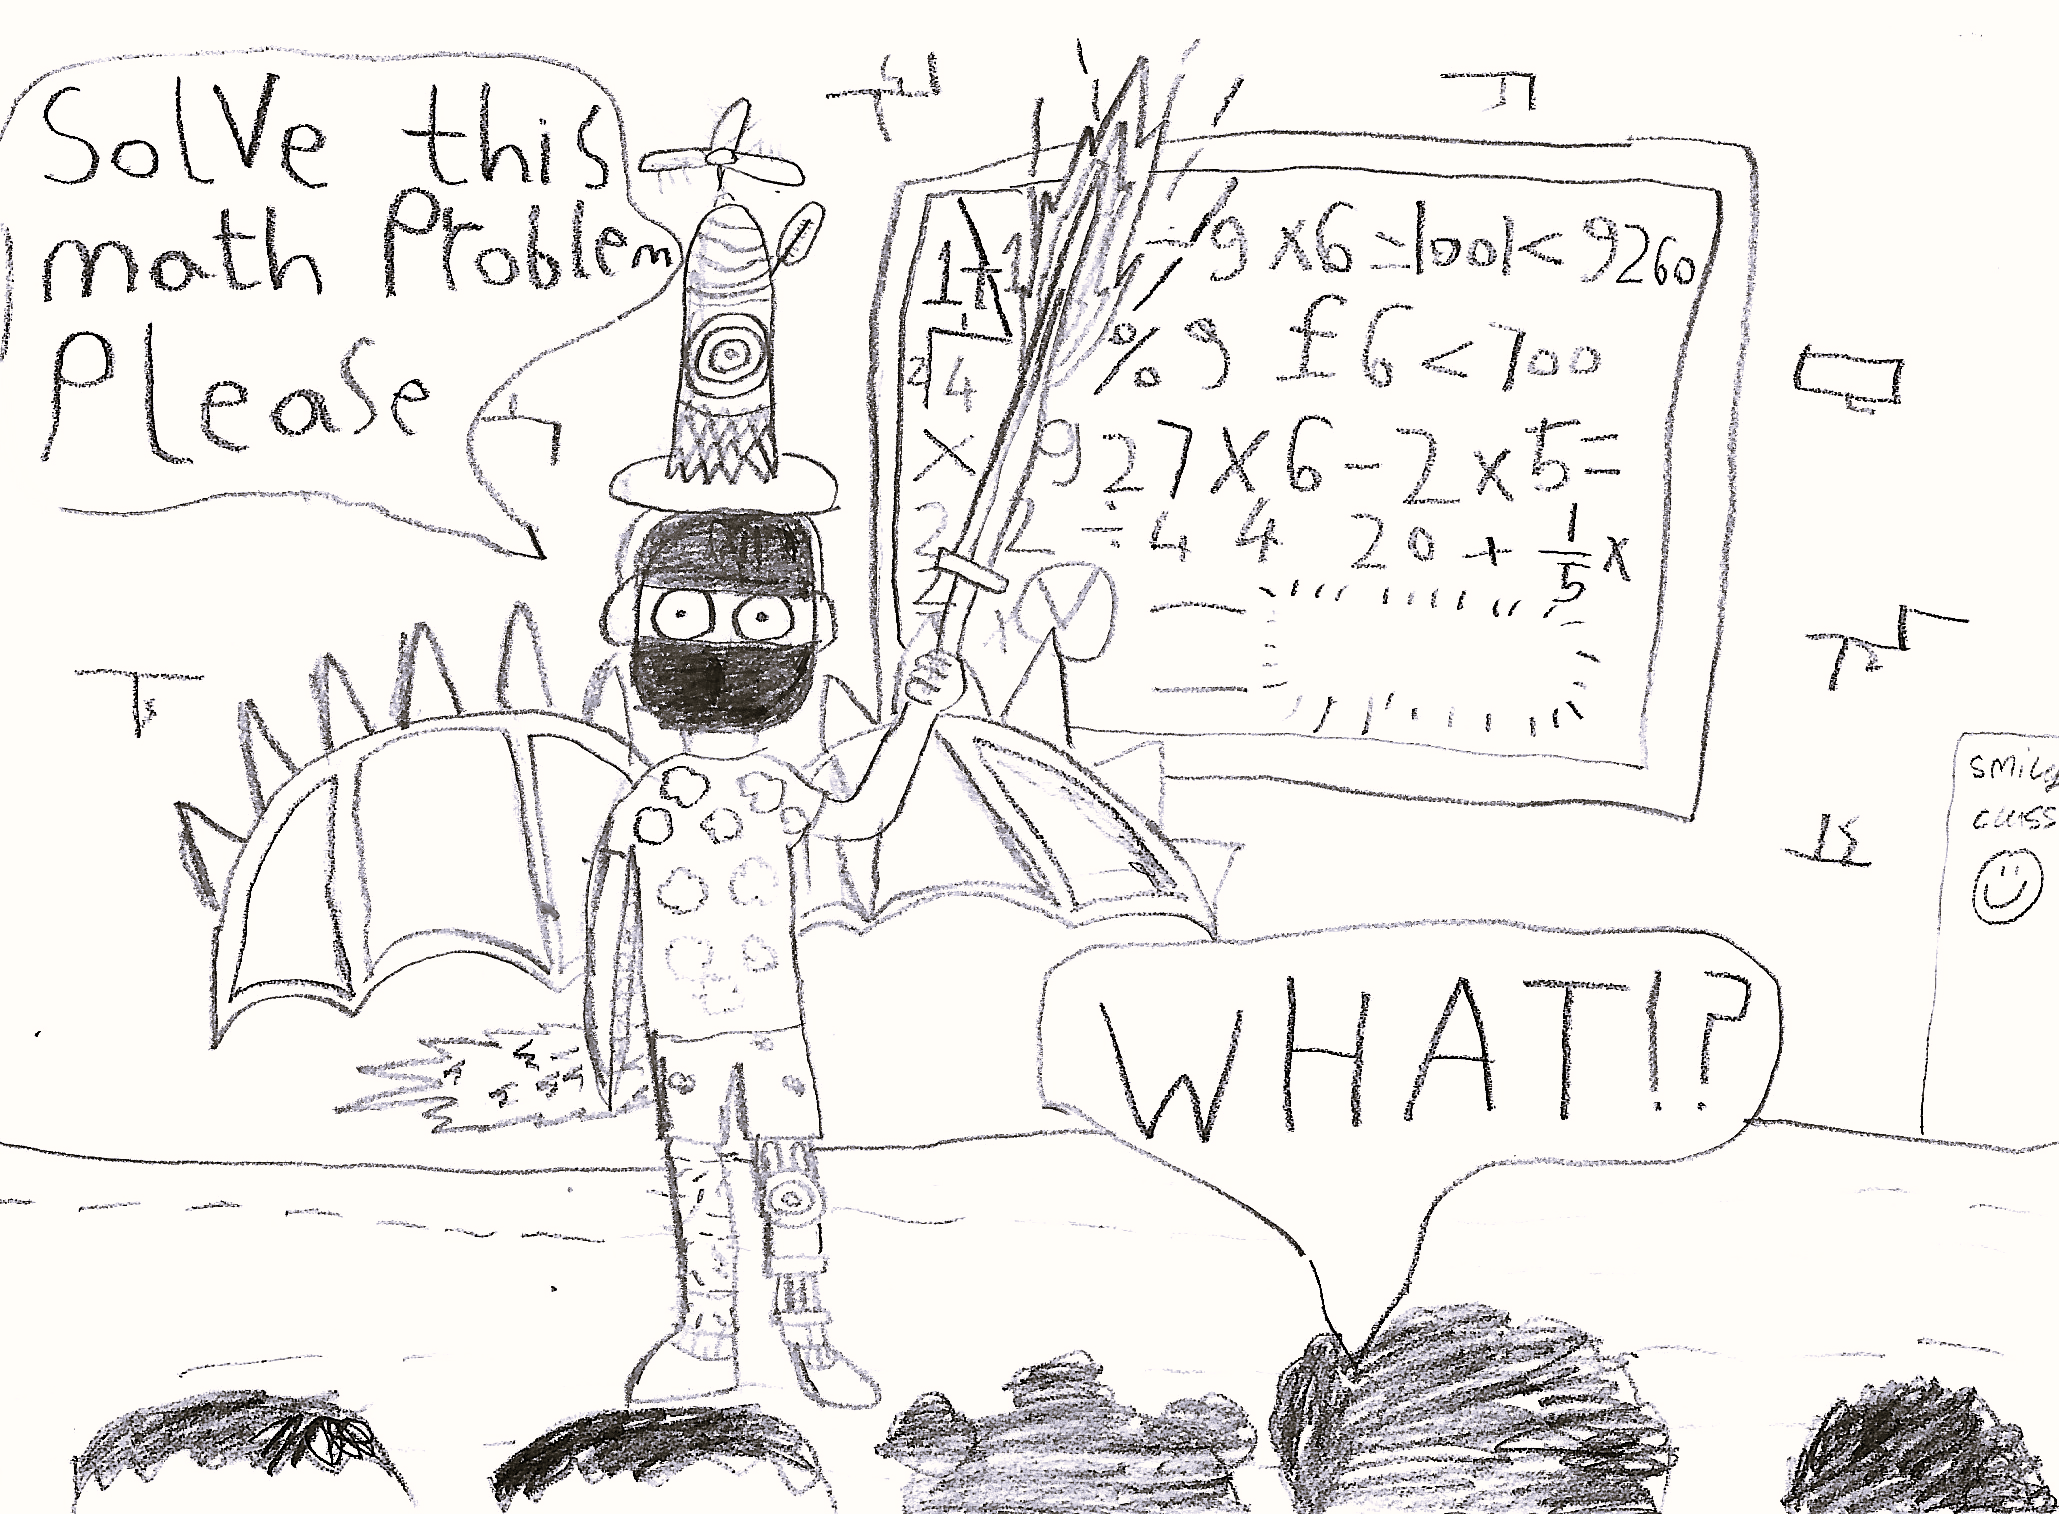 Solve this
math Problem
Please
1+1 ÷ 9 x 6 = 1001 < 9260
2√4 % 9 £6 < 700
x 927 x 6 - 2 x 5 =
2 2 ÷ 4 4 20 + 1/5 x
smiley
class
WHAT!?